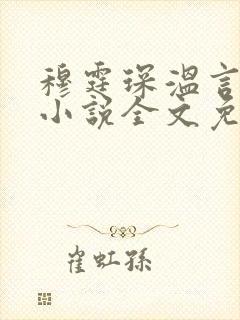 穆霆琛温言
小说全文免
崔虹孙